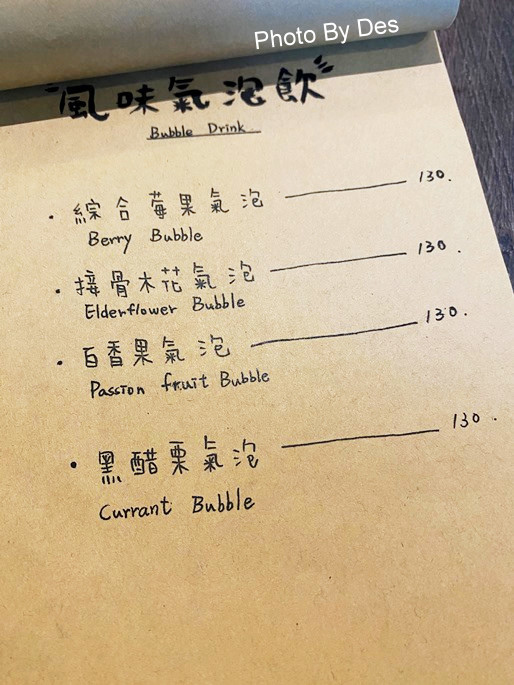 Photo By Des
風味氣泡飲
Bubble Drink
• 綜合莓果氣泡 130.
Berry Bubble
• 接骨木花氣泡 130.
Elderflower Bubble
• 百香果氣泡 130.
Passion fruit Bubble
• 黑醋栗氣泡 130.
Currant Bubble